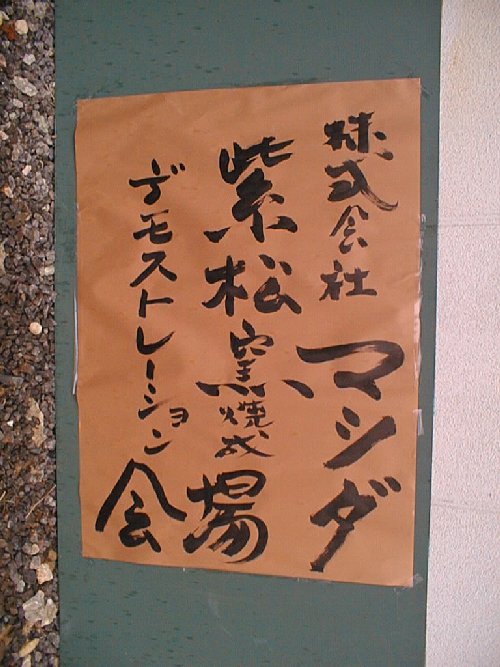 株式会社 マシダ
紫松窯焼成場
デモストレーション会